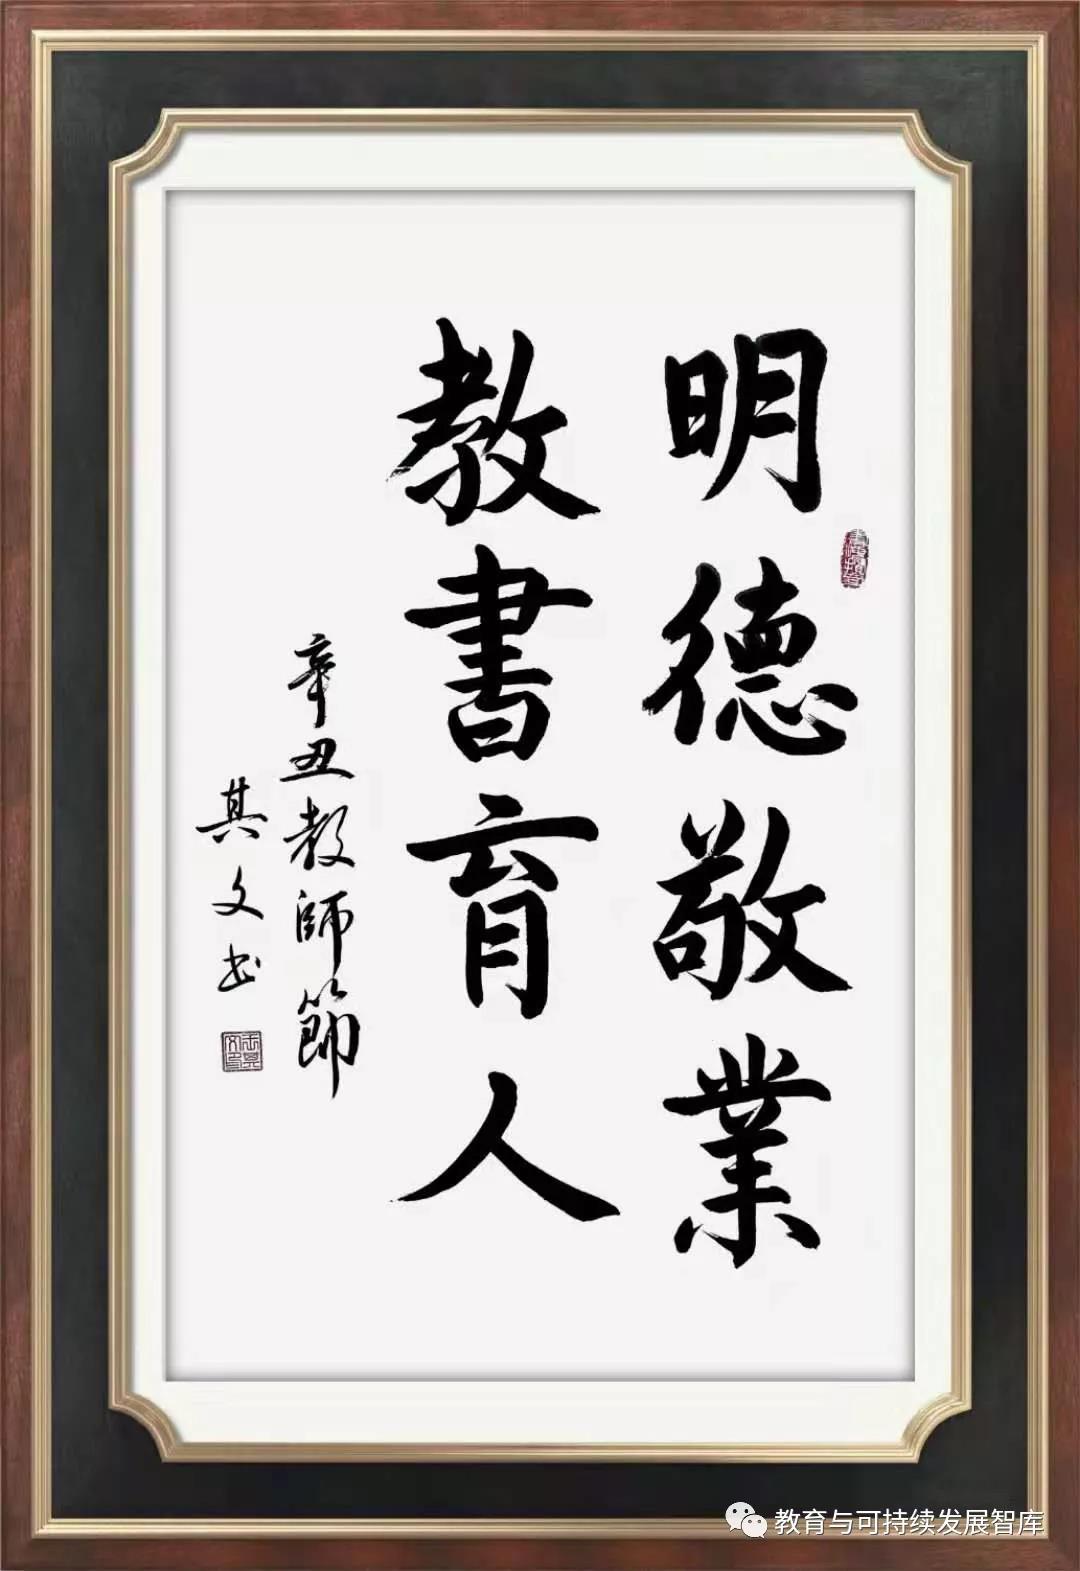 明德敬業
教書育人
辛丑教師節
其文书
教育与可持续发展智库